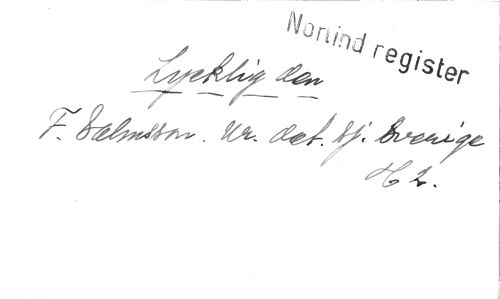 Norlind register
Lycklig den
F. Salmsson. Ur. det. sj. Sverige
H 2.